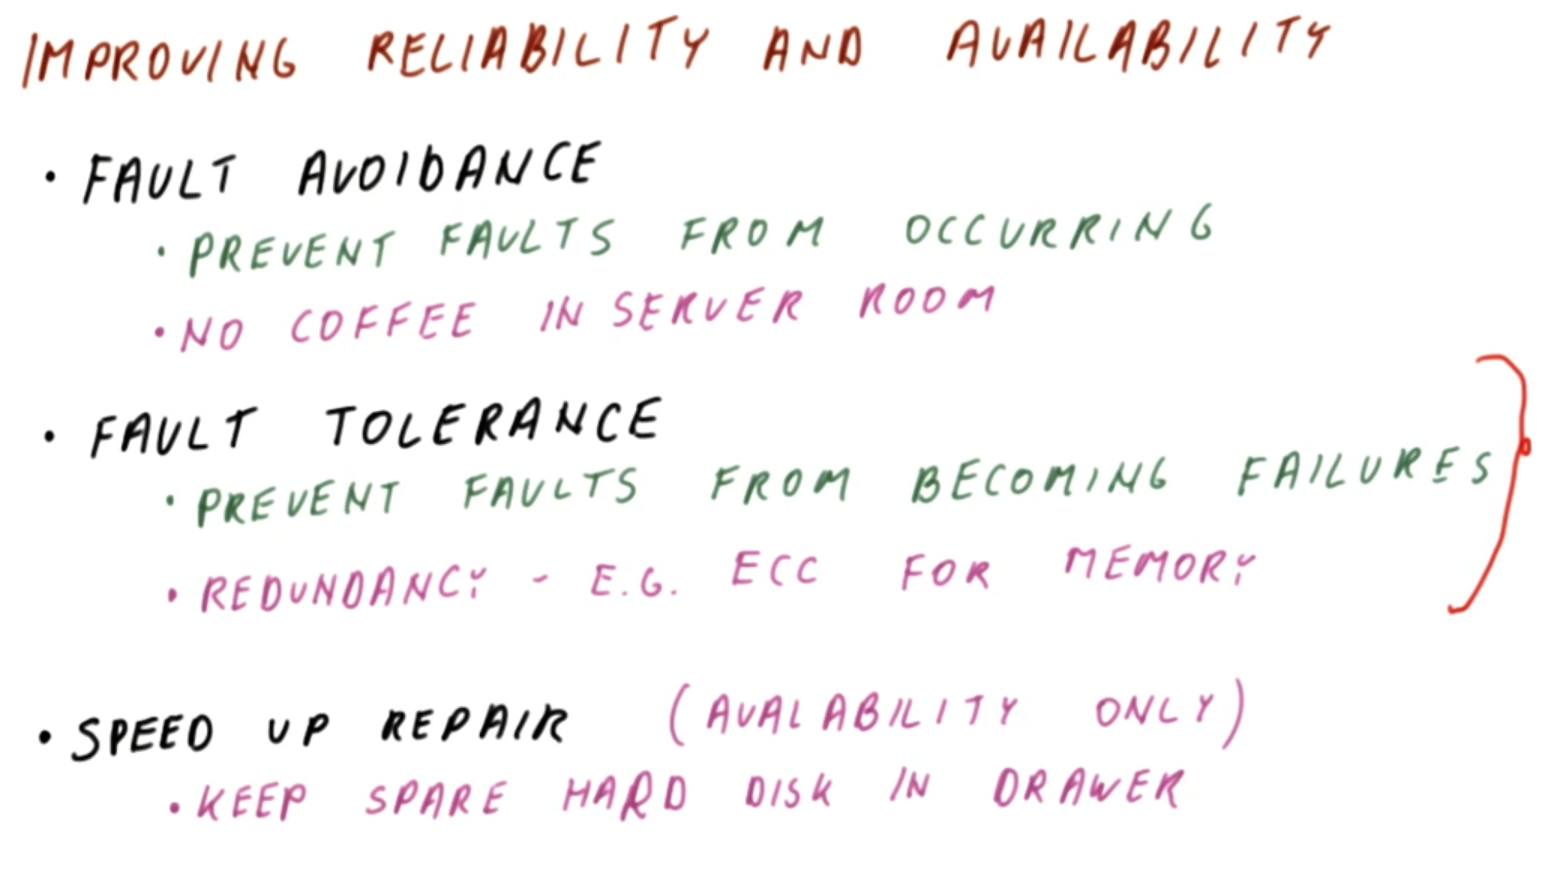 IMPROVING RELIABILITY AND AVAILABILITY
• FAULT AVOIDANCE
• PREVENT FAULTS FROM OCCURRING
• NO COFFEE IN SERVER ROOM
• FAULT TOLERANCE
• PREVENT FAULTS FROM BECOMING FAILURES
• REDUNDANCY - E.G. ECC FOR MEMORY
• SPEED UP REPAIR (AVALABILITY ONLY)
• KEEP SPARE HARD DISK IN DRAWER